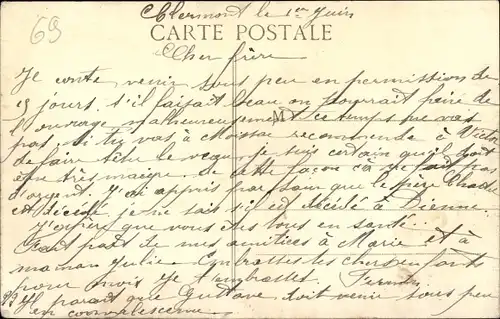 69
Clermont le 1er Juin
CARTE POSTALE
Cher frère
Je conte venir sous peu en permission de
jours. s'il faisait beau on pourrait faire de
l'ouvrage malheureusement ce temps que vas
pas. Si tu vas à recommende à Victor
de faire je suis certain qu'il doit
être très maigre. de cette façon ça ne fait pas
d'argent. J'ai appris par Sam que le père
est décédé, je ne sais s'il est décédé à Dienne.
J'espère que vous êtes tous en santé.
Faut part de mes amitiées à Marie et à
maman Julie. Embrasses les chers enfants
pour mois je t'embrasse. Fernand
Il parait que Gustave doit venir sous peu
en convalescence